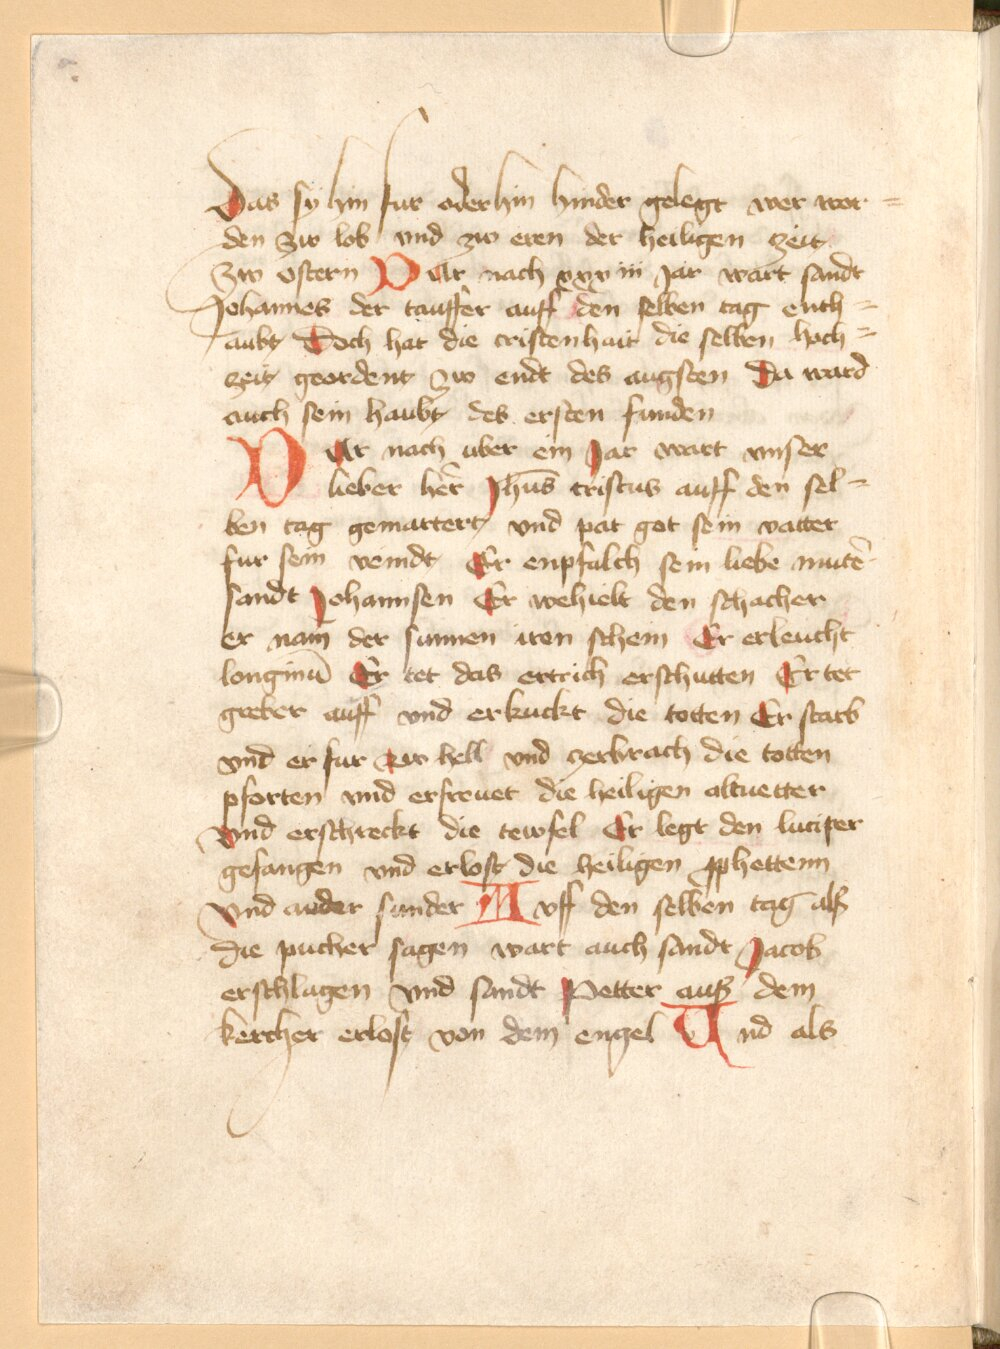 Das sy hin fur oder hin hinder gelegt wer wor=
den zw lob vnd zw eren der heiligen zeit
zw ostern Dar nach xxxiii Jar wart sandt
Johannes der tauffer auff den selben tag enth=
aubt Doch hat die cristenhait die selben hoch=
zeit geordent zw endt des augsten Da ward
auch sein haubt des ersten funden
Dar nach uber ein Jar wart vnser
lieber her Jhus cristus auff den sel=
ben tag gemartert vnd pat got sein vatter
fur sein veindt Er enpfalch sein liebe muter
sandt Johannsen Er wehielt den schacher
er nam der sunnen iren schein Er erleucht
longinu Er tet das ertrich erschutten Er tet
greber auff vnd erkuckt die totten Er starb
vnd er fur zw hell vnd zerbrach die totten
pforten vnd erfrewet die heiligen altuetter
Vnd erschreckt die tewfel Er legt den lucifer
gefangen vnd erlost die heiligen pphettenn
Vnd ander sunder Auff den selben tag als
die pucher sagen wart auch sandt Jacob
erschlagen vnd sandt Petter auß dem
kercher erlost von dem engel Und als